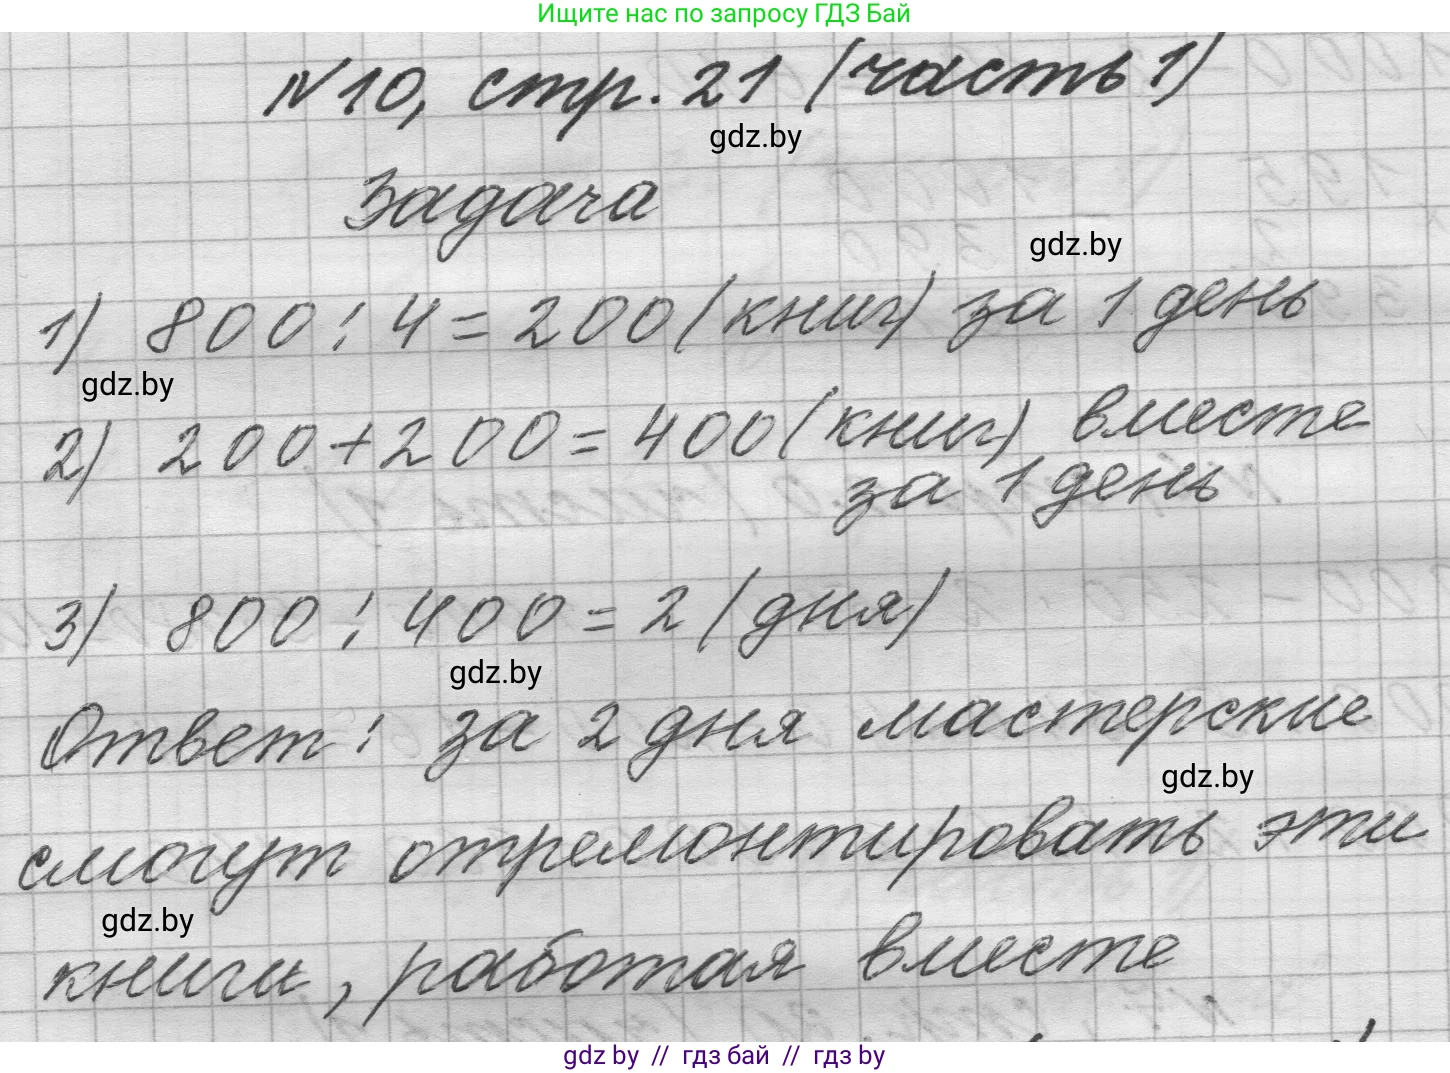 Ищите нас по запросу ГДЗ Бай
№10, стр. 21 (часть 1)
gdz.by
Задача
gdz.by
1) 800 : 4 = 200 (книг) за 1 день
gdz.by
2) 200 + 200 = 400 (книг) вместе
за 1 день
3) 800 : 400 = 2 (дня)
gdz.by
Ответ: за 2 дня мастерские
gdz.by
смогут отремонтировать эти
gdz.by
книги, работая вместе
gdz by // гдз бай // гдз by